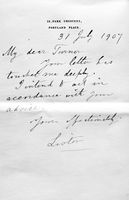 12, PARK CRESCENT,
PORTLAND PLACE.
31 July 1907
My dear Turnor
Your letter has
touched me deeply.
I intend to act in
accordance with your
advice.
Yours affectionately